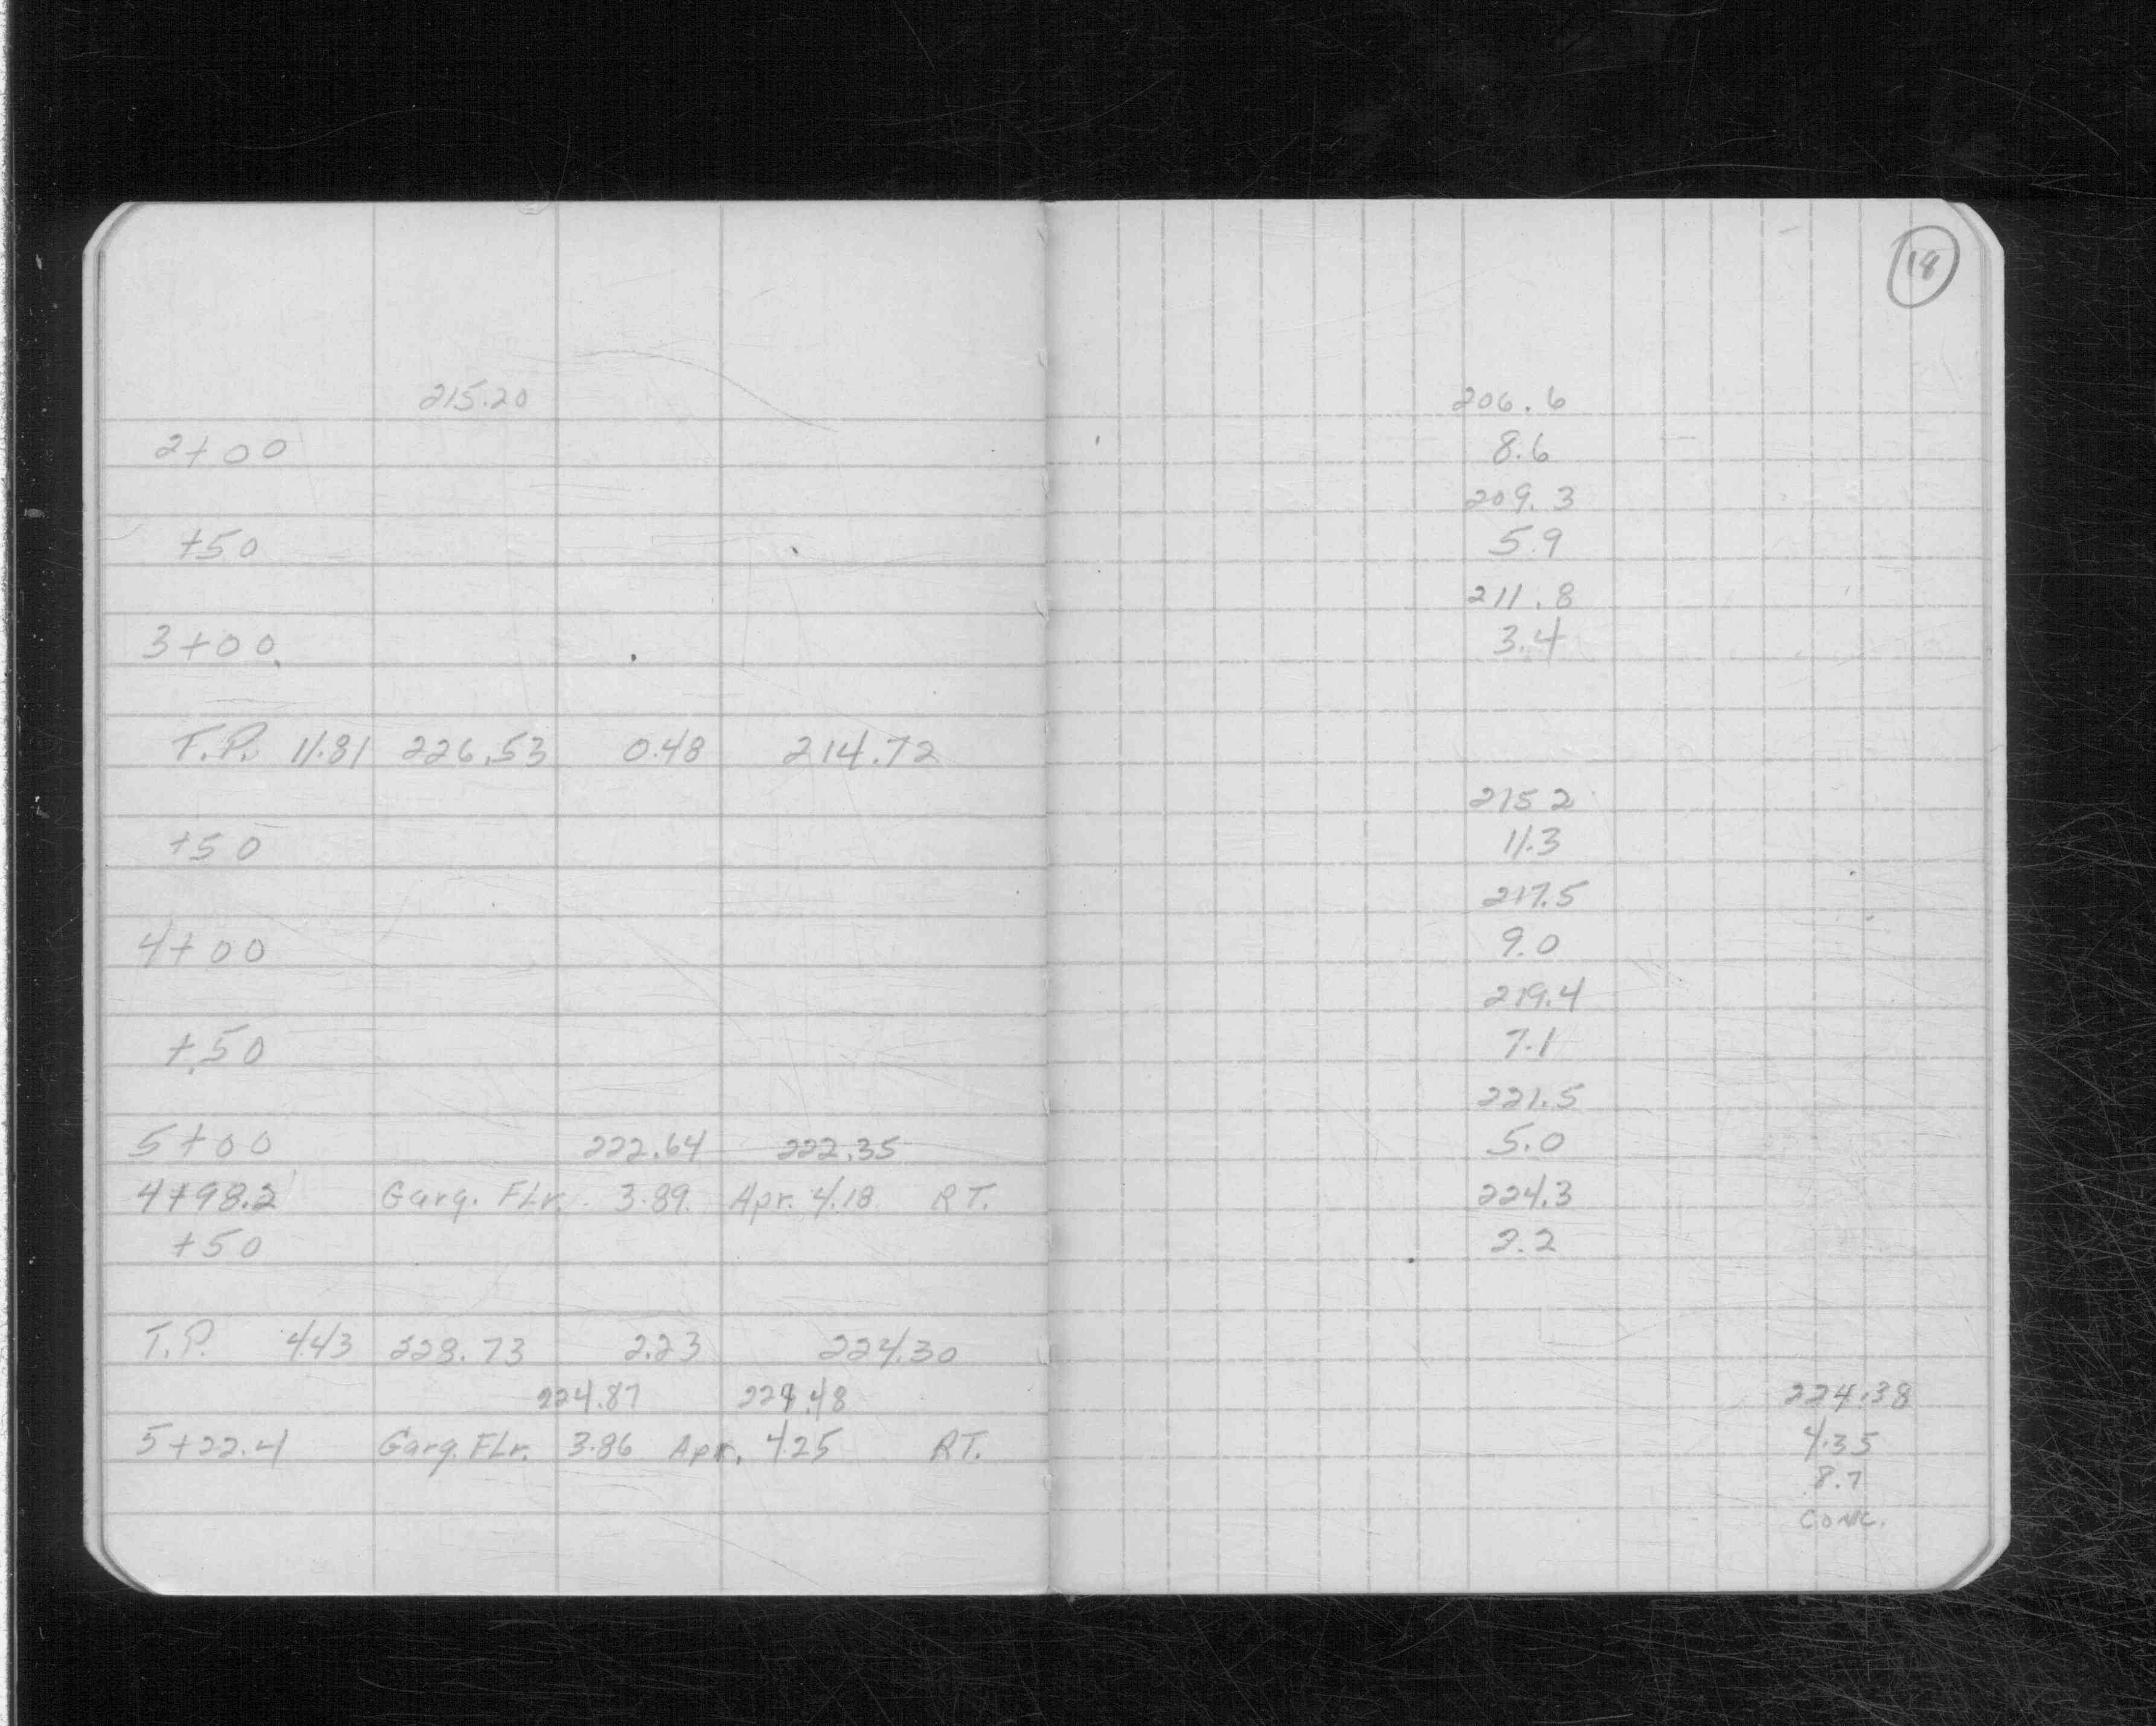 18
215.20 206.6
2+00 8.6
209.3
+50 5.9
211.8
3+00 3.4
T.P. 11.81 226.53 0.48 214.72
215 2
+50 11.3
217.5
4+00 9.0
219.4
+50 7.1
221.5
5+00 222.64 222.35 5.0
4+98.2 Garg. FLr. 3.89 Apr. 4.18 RT. 224.3
+50 2.2
T.P. 4.43 228.73 2.23 224.30
224.87 224.48 224.38
5+22.4 Garg. FLr. 3.86 Apr. 4.25 RT. 4.35
8.7
CONC.